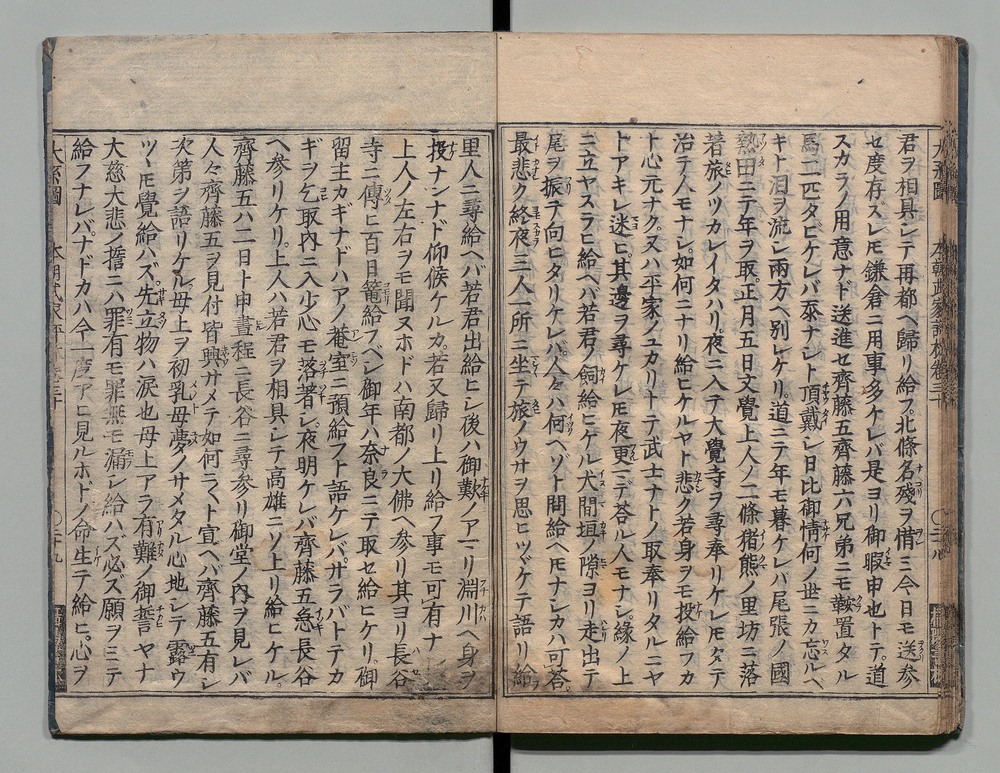 君ヲ相具シテ再都ヘ歸リ給フ。北條名殘ヲ惜ミ今日モ送参
セ度存スレ𪜈鎌倉ニ用事多ケレバ是ヨリ御暇申也トテ。道
スカラノ用意ナド送進セ齊藤五齊藤六兄弟ニモ鞍置タル
馬二匹タビケレバ忝ナシト頂戴シ日比御情何ノ世ニカ忘ルヘ
キト泪ヲ流シ兩方ヘ別レケリ。道ニテ年モ暮ケレバ尾張ノ國
熱田ニテ年ヲ取。正月五日文覺上人ノ二條猪熊ノ里坊ニ落
著。旅ノツカレイタハリ。夜ニ入テ大覺寺ヲ尋奉リケレ𪜈タテ
治テ人モナシ。如何ニナリ給ヒケルヤト悲ク若身ヲモ投給フカ
ト心元ナク。又ハ平家ノユカリトテ武士ナトノ取奉リタルニヤ
トアキレ迷ヒ。其邊ヲ尋ケレ𪜈夜更ニテ荅ル人モナシ。緣ノ上
ニ立ヤスラヒ給ヘバ若君ノ飼給ヒケル犬間垣ノ隙ヨリ走出テ
尾ヲ振テ向ヒタリケレバ。人々ハ何ヘゾト問給ヘ𪜈ナシカハ可荅。
最悲ク終夜三人一所ニ坐テ旅ノウサヲ思ヒツヾケテ語リ給
里人ニ尋給ヘバ若君出給ヒシ後ハ御歎ノアマリ淵川ヘ身ヲ
投ナンナド仰候ケルカ。若又歸リ上リ給フ事モ可有ナド
上人ノ左右ヲモ聞ヌホドハ南都ノ大佛ヘ参リ其ヨリ長谷
寺ニ傳ヒ百日籠給フベシ御年ハ奈良ニテ取セ給ヒケリ。御
留主カギナドハアノ菴室ニ預給フト語ケレバ。サラバトテカ
ギヲ乞取内ニ入少心モ落著シ。夜明ケレバ齊藤五急長谷
ヘ参リケリ。上人ハ若君ヲ相具シテ高雄ニソ上リ給ヒケル。
齊藤五ハ二日ト申晝程ニ長谷ニ尋参リ御堂ノ内ヲ見レバ
人々齊藤五ヲ見付皆興サメテ如何ニ〱ト宣ヘバ齊藤五有シ
次第ヲ語リケル。母上ヲ初乳母夢ノサメタル心地シテ露ウ
ツヽ𪜈覺給ハズ。先立物ハ涙也母上アラ有難ノ御誓ヤナ
大慈大悲ノ誓ニハ罪有モ罪無モ漏シ給ハズ必ズ願ヲミテ
給フナレバ。ナドカハ今一度アヒ見ルホドノ命生テ給ヒ。心ヲ